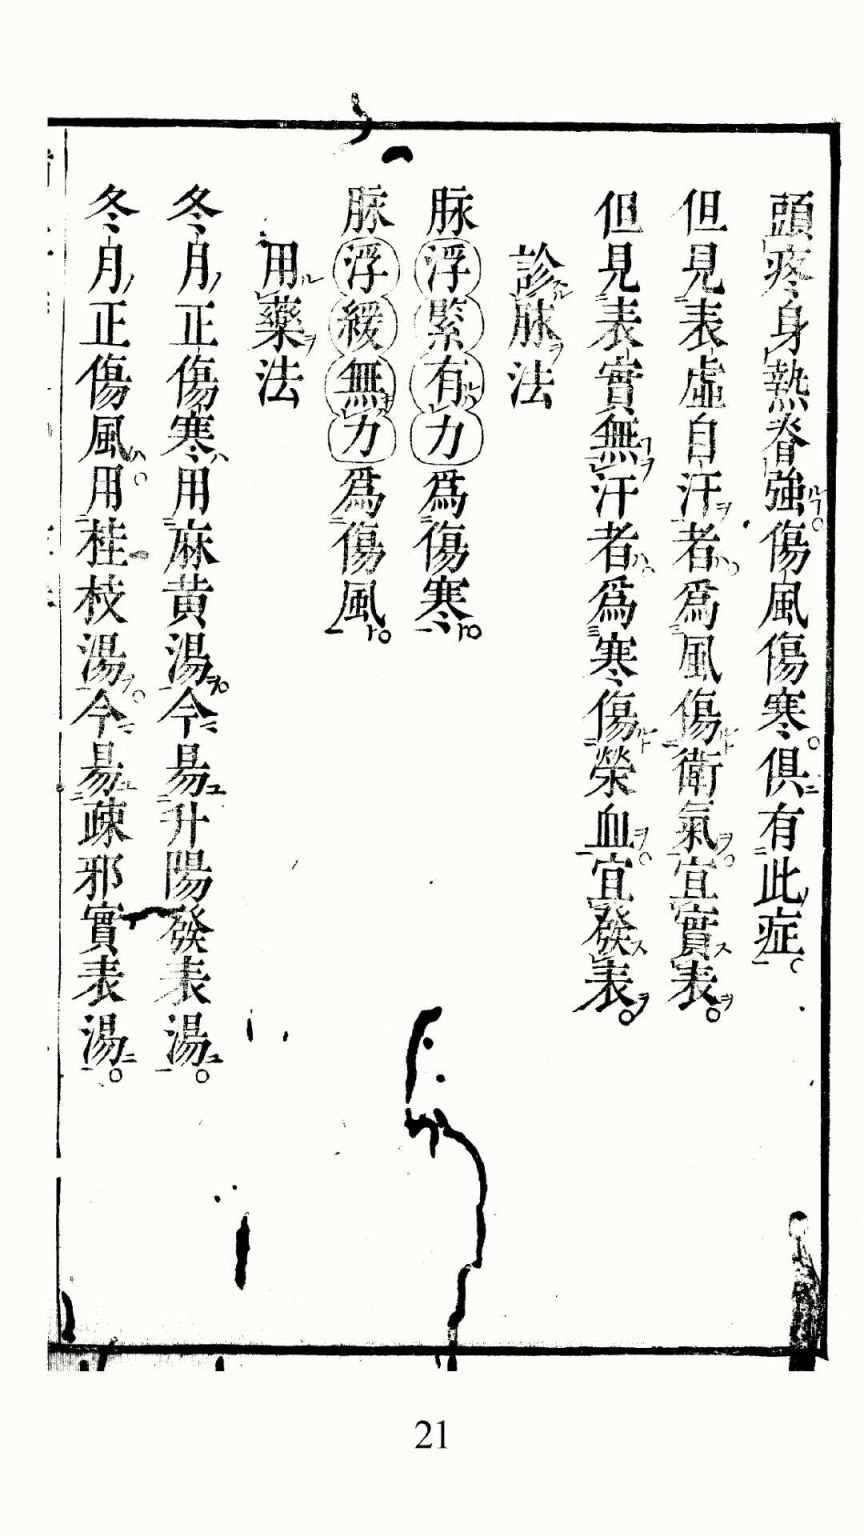 頭疼身熱脊強傷風傷寒俱有此症
但見表虛自汗者爲風傷衛氣宜實表
但見表實無汗者爲寒傷榮血宜發表
診脉法
脉浮緊有力爲傷寒
脉浮緩無力爲傷風
用藥法
冬月正傷寒用麻黄湯今易升陽發表湯
冬月正傷風用桂枝湯今易疎邪實表湯
21